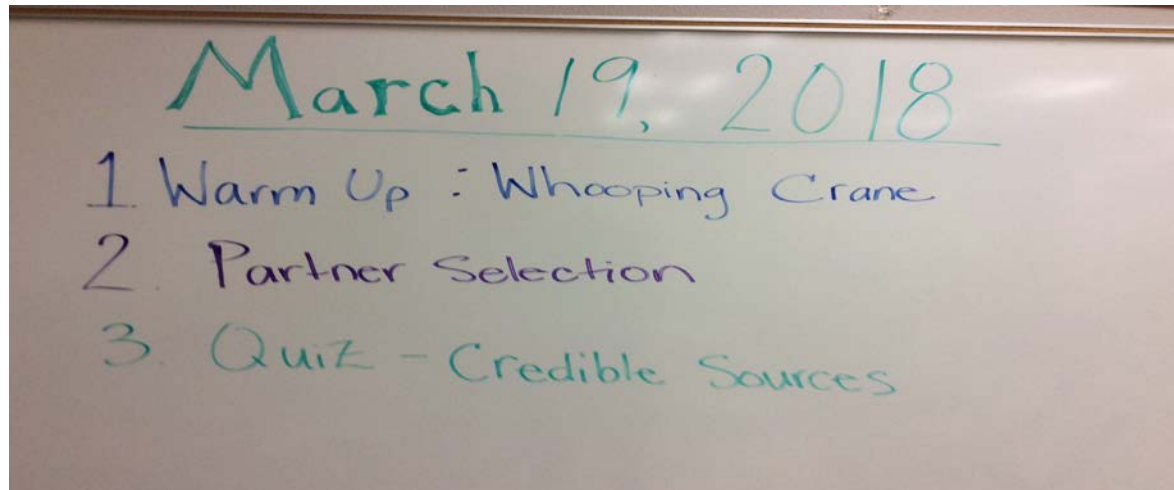 March 19, 2018
1. Warm Up : Whooping Crane
2. Partner Selection
3. Quiz - Credible Sources